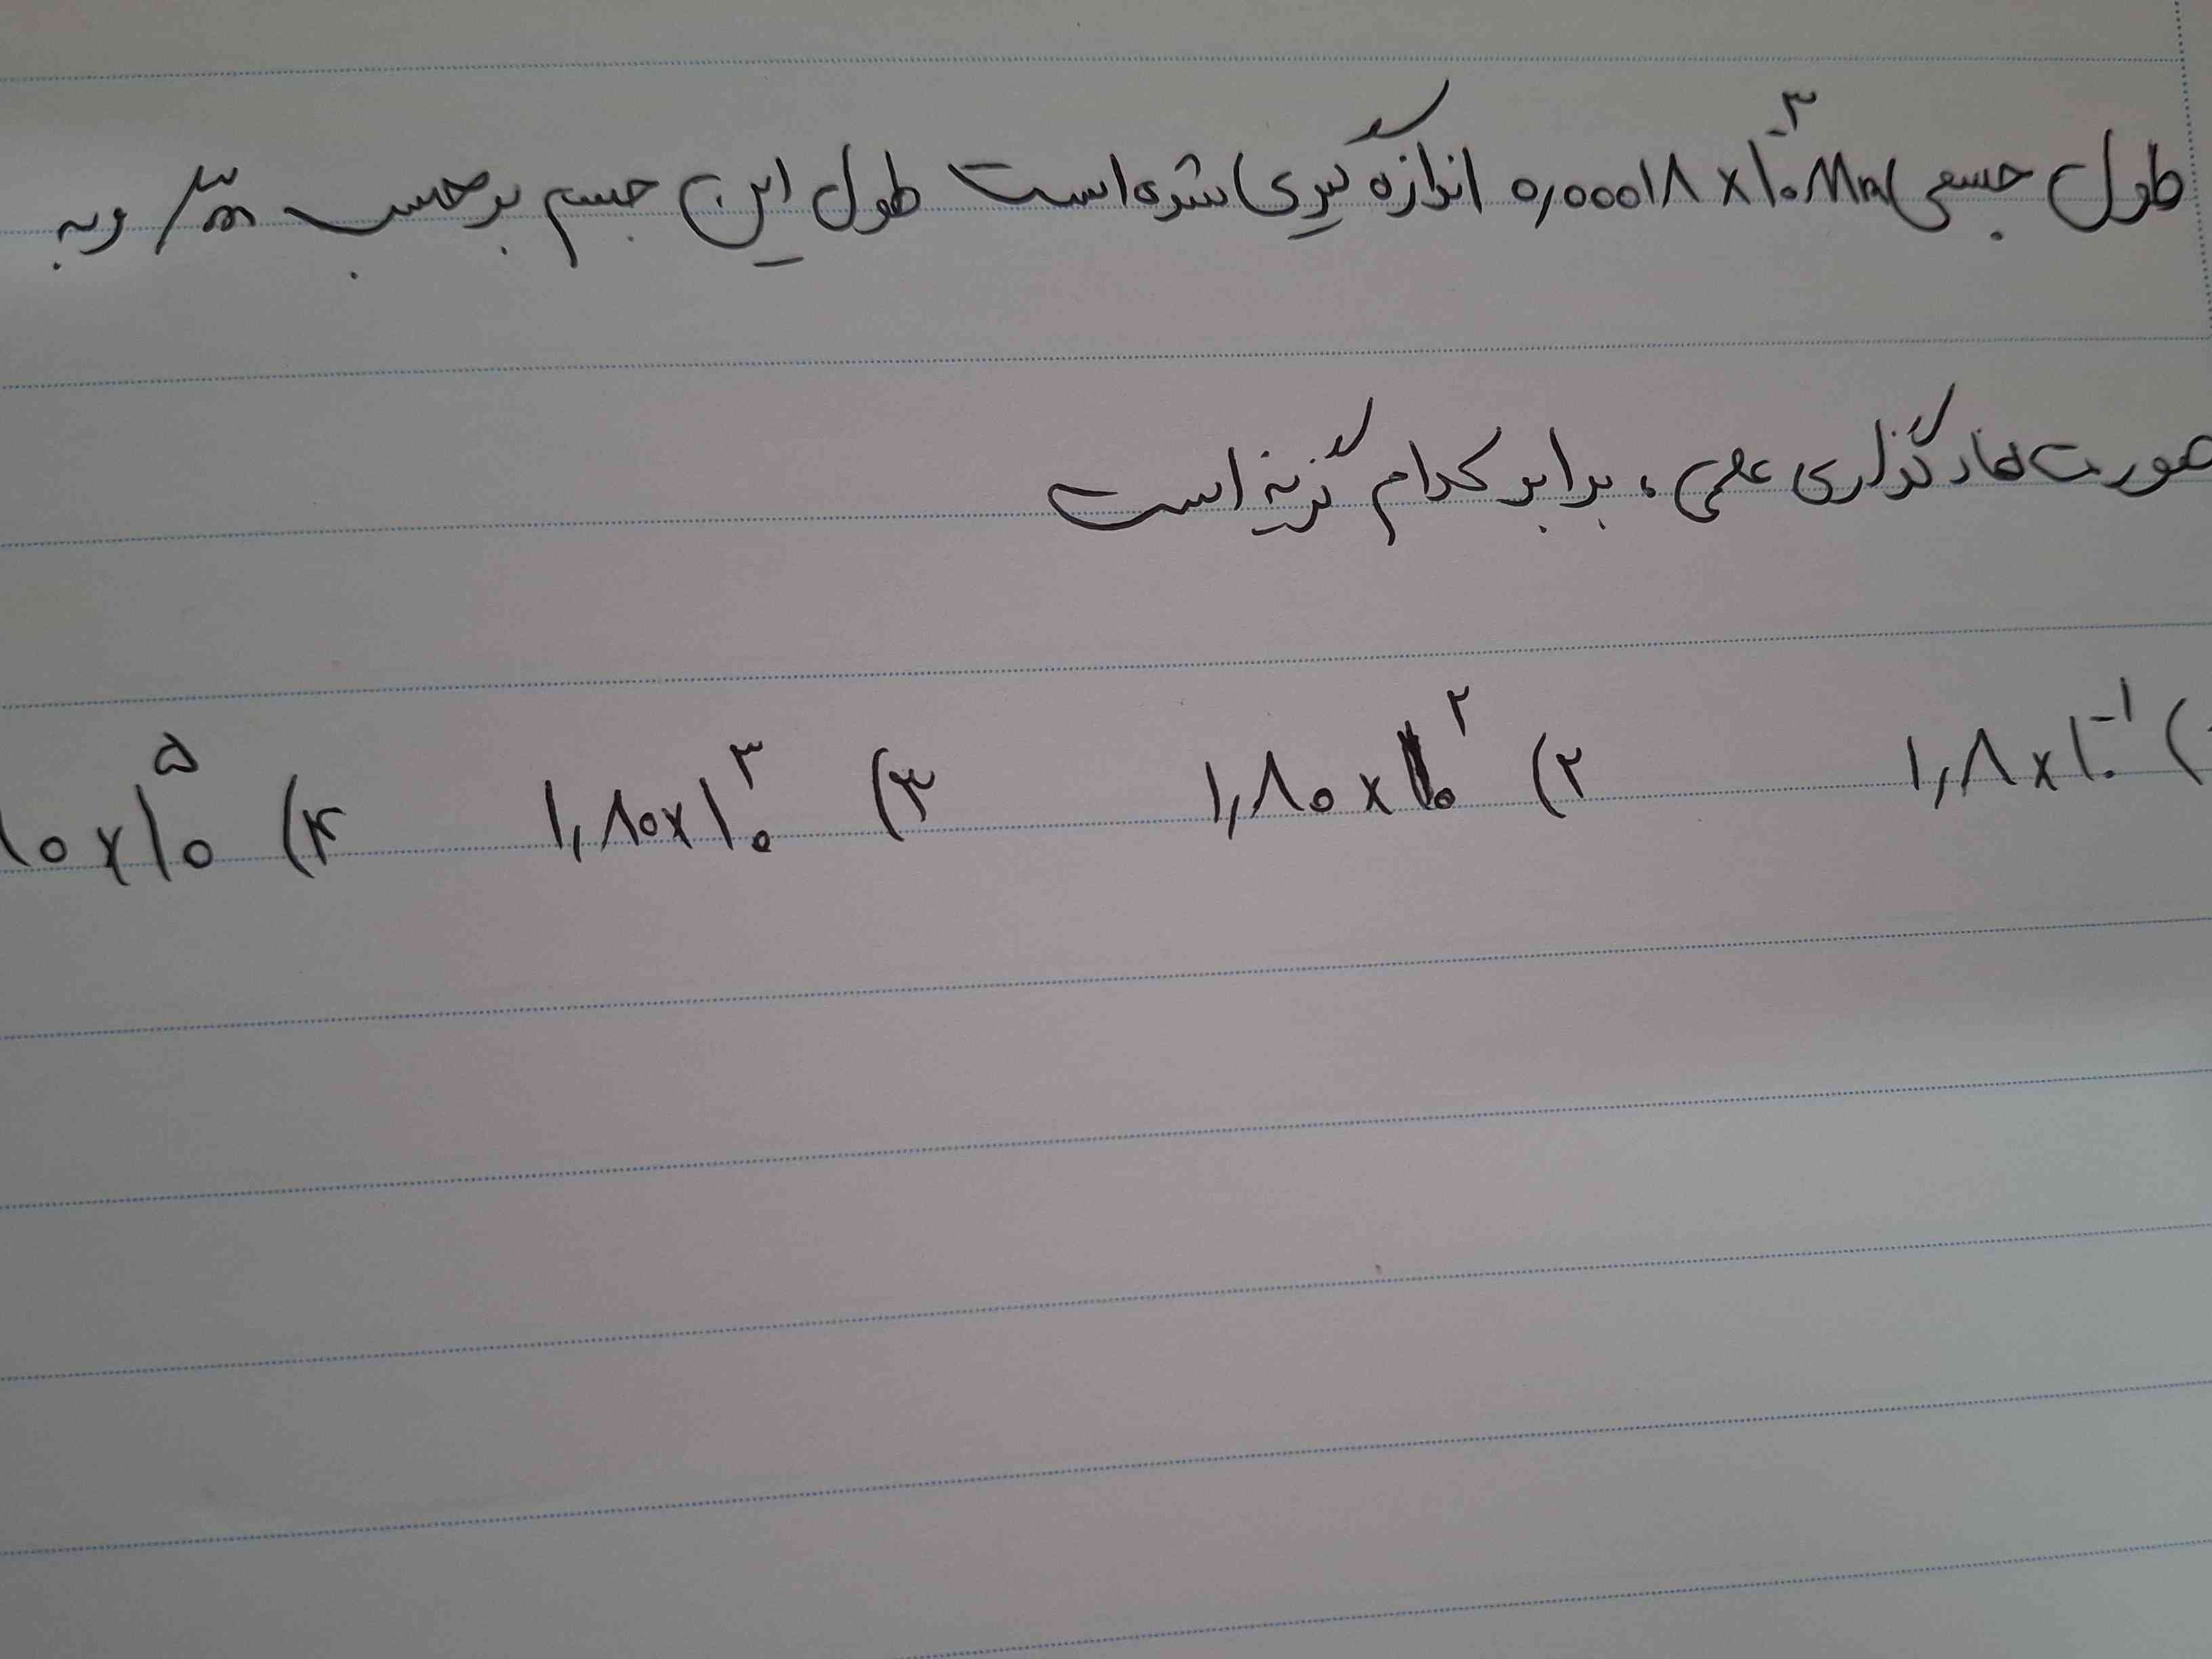 طول جسمی ۰٫۰۰۰۱۸ × ۱۰⁻³ Mm اندازه گیری شده است طول این جسم برحسب وبه
صورت نماد گذاری علمی ، برابر کدام گزینه است
۱٫۸ × ۱۰⁻¹ ( ۲) ۱٫۸۰ × ۱۰² ۳) ۱٫۸۰ × ۱۰³ ۴) ۱۰ × ۱۰⁵